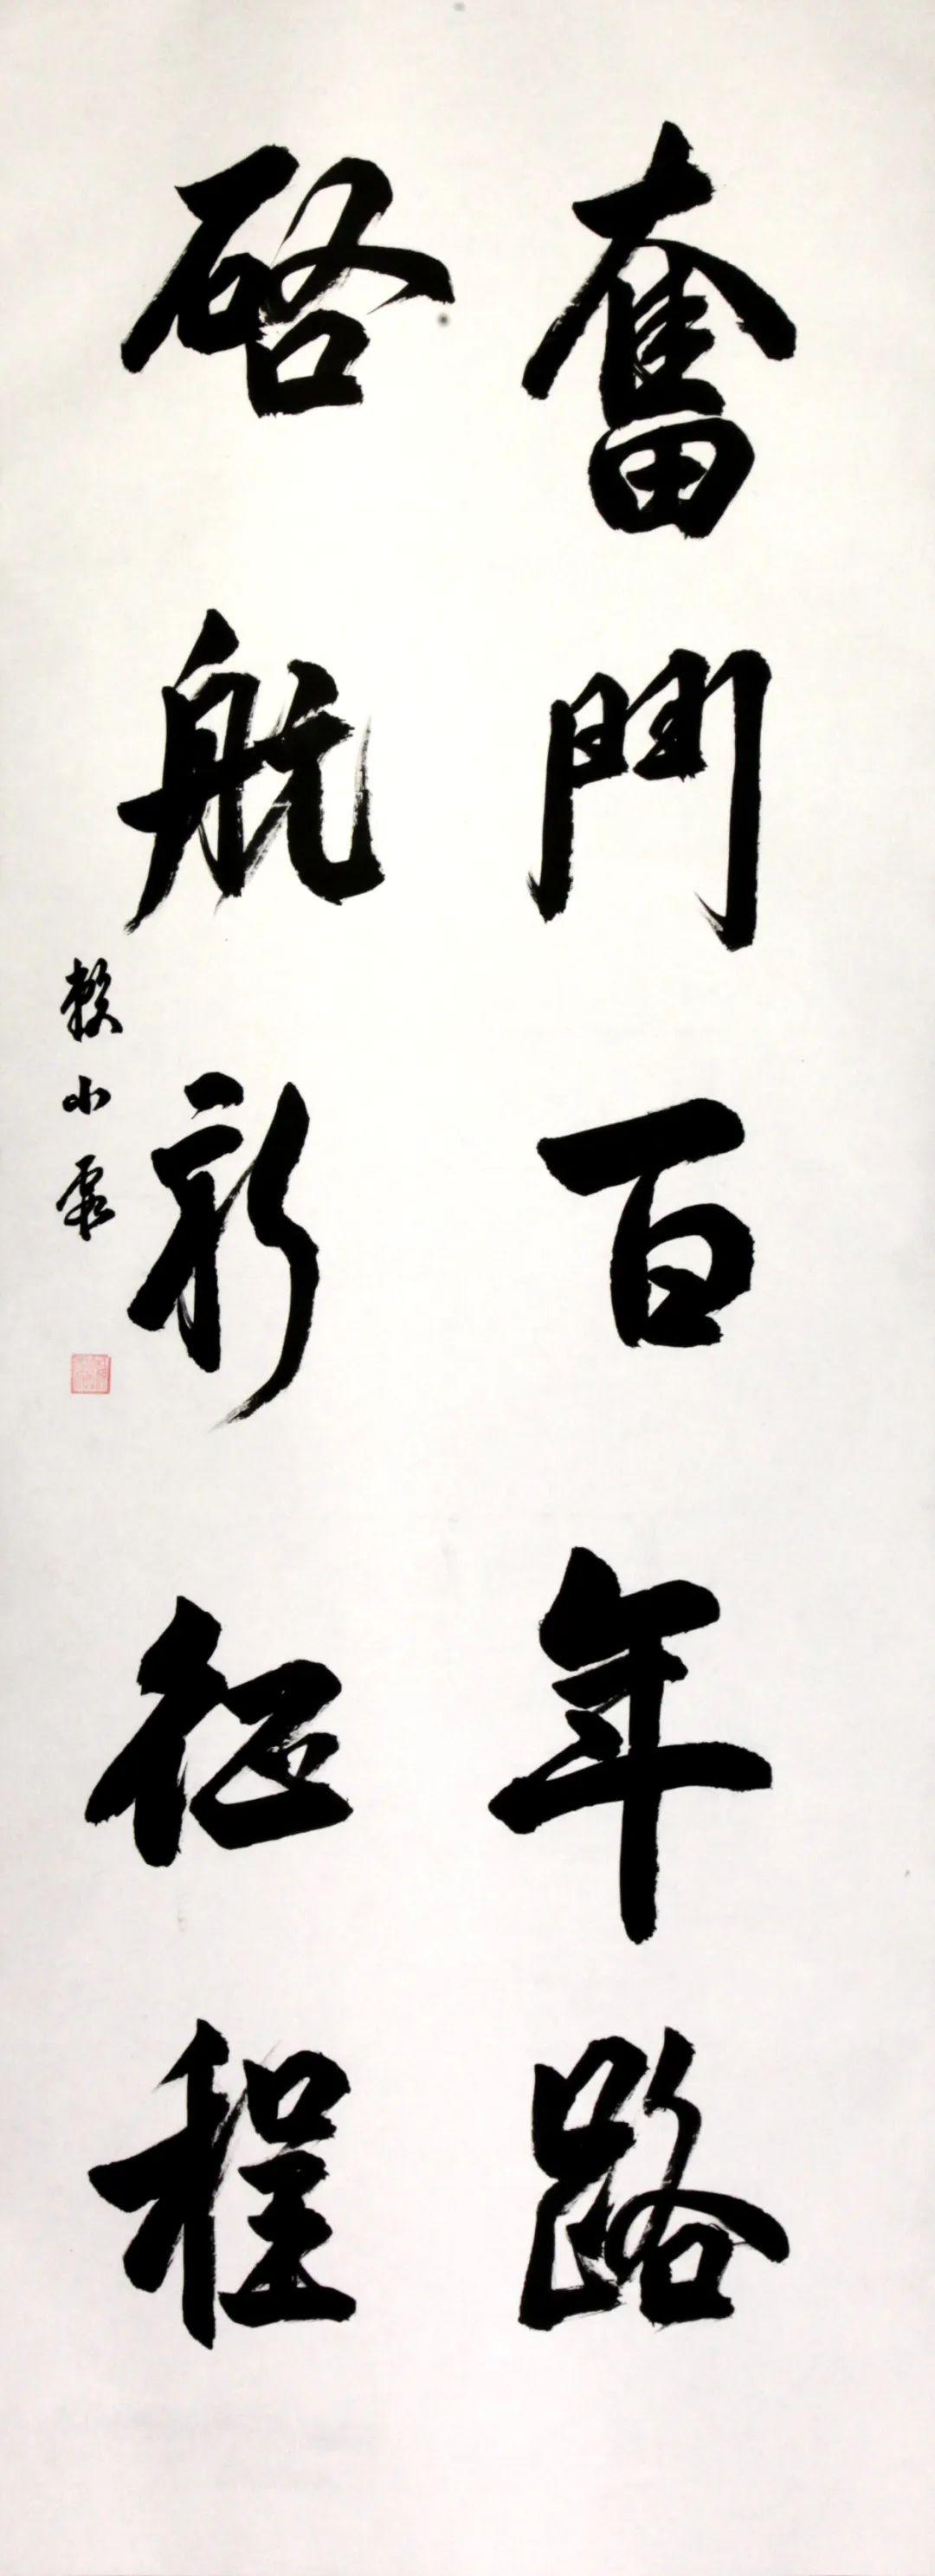 奮鬥百年路
啓航新征程
賴小霞